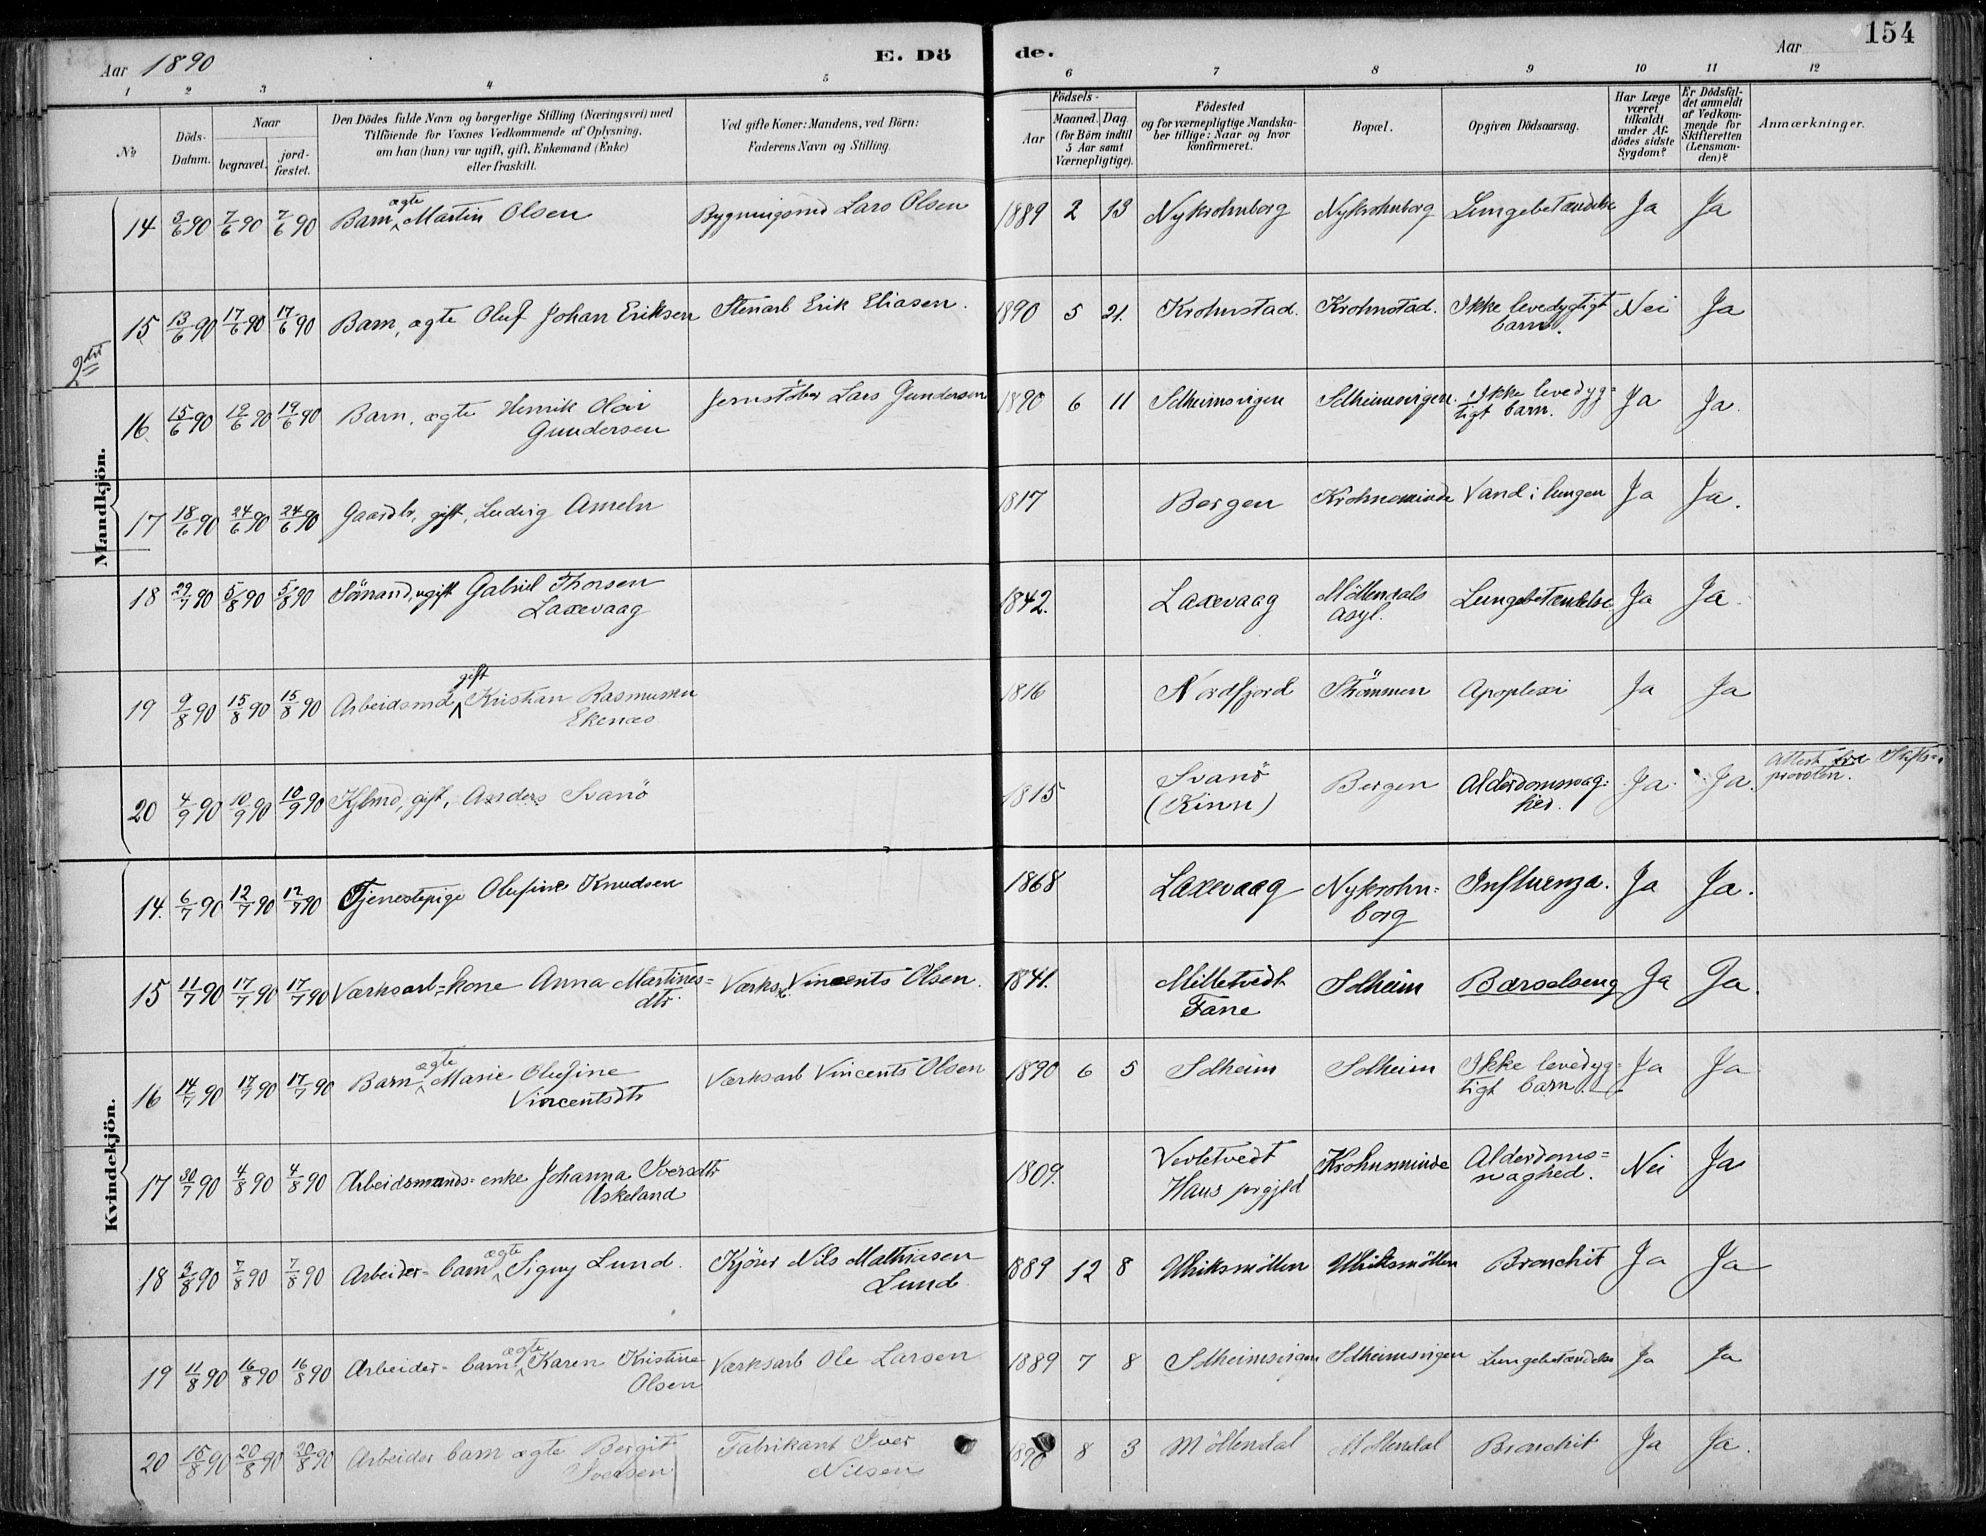 Aar 1890
E. Dö
de.
Aar
154
1 2 3 4 5 6 7 8 9 10 11 12
No
Döds-
Datum.
Naar
begravet.
jord-
fæstet.
Den Dödes fulde Navn og borgerlige Stilling (Næringsvei) med
Tilföiende for Voxnes Vedkommende af Oplysning,
om han (hun) var ugift, gift, Enkemand (Enke)
eller fraskilt.
Ved gifte Koner: Mandens, ved Börn:
Faderens Navn og Stilling.
Födsels-
Aar
Maaned.
Dag
(for Börn indtil
5 Aar samt
Værnepligtige).
Födested
og for værnepligtige Mandska-
ber tillige: Naar og hvor
konfirmeret.
Bopæl.
Opgiven Dödsaarsag.
Har Læge
været
tilkaldt
under Af-
dödes sidste
Sygdom?
Er Dödsfal-
det anmeldt
af Vedkom-
mende for
Skifteretten
(Lensman-
den)?
Anmærkninger.
Mandkjön.
14 3/6 90 7/6 90 7/6 90 Barn ægte Martin Olsen Bygningsmd Lars Olsen 1889 2 13 Nykrohnborg Nykrohnborg Lungebetændelse Ja Ja
15 13/6 90 17/6 90 17/6 90 Barn, ægte Oluf Johan Eriksen Stenarb Erik Eliasen. 1890 5 21. Krohnstad. Krohnstad. Ikke levedygtigt Nei Ja
barn.
16 15/6 90 19/6 90 19/6 90 Barn, ægte Henrik Olai Jernstöber Lars Gundersen 1890 6 11 Solheimsvigen Solheimsvigen. Ikke levedyg- Ja Ja.
Gundersen tigt barn.
17 18/6 90 24/6 90 24/6 90 Gaardbr, gift, Ludvig Ameln 1817 Bergen Krohnsminde Vand i lungen Ja Ja.
18 29/7 90 5/8 90 5/8 90 Sömand, ugift Gabriel Thorsen 1842. Laxevaag Möllendals Lungebetændelse Ja Ja.
Laxevaag asyl.
19 9/8 90 15/8 90 15/8 90 Arbeidsmd gift Kristian Rasmussen 1816 Nordfjord Strömmen Apoplexi Ja Ja
Ekenæs
20 4/9 90 10/9 90 10/9 90 Kjbmd, gift, Anders Svanö 1815 Svanö Bergen Alderdomssvag- Ja. Ja. Attest fra Stifts-
(Kinn) hed. provsten.
Kvindekjön.
14. 6/7 90 12/7 90 12/7 90 Tjenestepige Olufine Knudsen 1868 Laxevaag Nykrohn- Influenza. Ja Ja.
borg
15 11/7 90 17/7 90 17/7 90 Værksarb-kone Anna Martines- Værksarb. Vincents Olsen. 1841. Milletvedt Solheim Barselseng Ja Ja.
dtr. Fane
16 14/7 90 17/7 90 17/7 90 Barn ægte Marie Olufine Værksarb Vincents Olsen 1890 6 5 Solheim Solheim Ikke levedyg- Ja Ja
Vincentsdtr tigt barn.
17 30/7 90 4/8 90 4/8 90 Arbeidsmands-enke Johanna Iversdtr 1809. Vevletvedt Krohnsminde Alderdoms- Nei Ja
Askeland Haus prgjld svaghed.
18 3/8 90 7/8 90 7/8 90 Arbeider-barn ægte Signy Lund. Kjörer Nils Mathiasen 1889 12 8 Ulriksmöllen Ulriksmöllen Bronchit Ja Ja
Lund
19 11/8 90 16/8 90 16/8 90 Arbeider-barn ægte Karen Kristine Værksarb Ole Larsen 1889 7 8 Solheimsvigen Solheimsvigen Lungebetændelse Ja Ja
Olsen
20 15/8 90 20/8 90 20/8 90 Arbeider barn ægte Bergit Fabrikant Iver 1890 8 3 Möllendal Möllendal Bronchit Ja Ja.
Iversen Nilsen